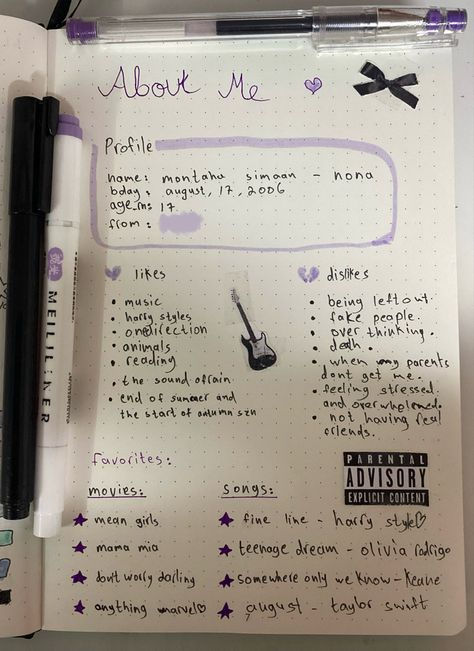 About Me
Profile
name: montaha simaan - nona
bday: august, 17, 2006
age rn: 17
from:
likes
• music
• harry styles
• onedirection
• animals
• reading
• the sound of rain.
• end of summer and
the start of autumn szn
dislikes
• being left out.
• fake people.
• over thinking.
• death.
• when my parents
dont get me.
• feeling stressed
and overwholemed.
• not having real
friends.
favorites:
movies:
★ mean girls
★ mama mia
★ don't worry darling
★ anything marvel♡
PARENTAL
ADVISORY
EXPLICIT CONTENT
songs:
★ fine line - harry style♡
★ teenage dream - olivia rodrigo
★ somewhere only we know - Keane
★ august - taylor swift
MEILILINER